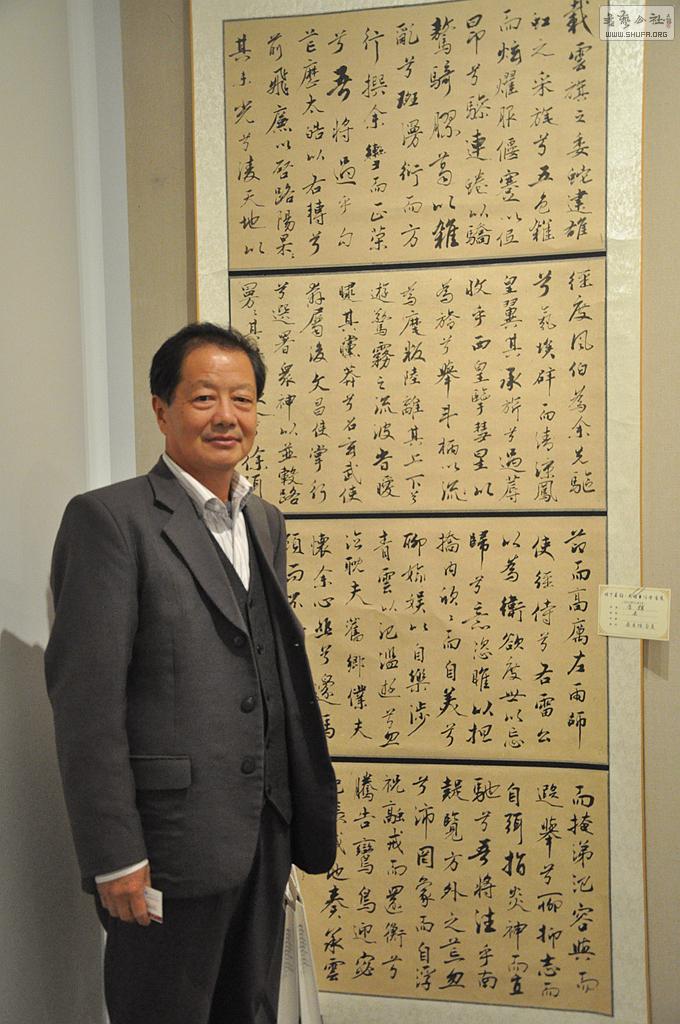 載雲旗之委蛇建雄
虹之采旄兮五色雜
而炫耀服偃蹇以低
昂兮驂連蜷以驕
驁騎膠葛以雜
亂兮斑漫衍而方
行撰余轡而正策
兮吾將過乎句
芒歷太皓以右轉兮
前飛廉以啓路陽杲
其未光兮凌天地以
徑度風伯為余先驅
兮氛埃辟而清涼鳳
皇翼其承旂兮遇蓐
收乎西皇擥彗星以
為旍兮舉斗柄以
為麾叛陸離其上下兮
遊驚霧之流波時曖
曃其曭莽兮召玄武使
奔屬後文昌使掌行
兮選署衆神以並轂路
曼曼其 徐弭
節而高厲左雨師
使徑侍兮右雷公
以為衛欲度世以忘
歸兮意恣睢以担
撟内欣欣而自美兮
聊媮娛以自樂涉
青雲以汎濫游兮忽
臨睨夫舊鄉僕夫
懷余心悲兮邊馬
顧而不
而掩涕氾容與而
遐舉兮聊抑志而
自弭指炎神而直
馳兮吾將往乎南
疑覽方外之荒忽
兮沛罔象而自浮
祝融戒而還衡兮
騰告鸞鳥迎宓
妃張咸池奏承雲
WWW.SHUFA.ORG